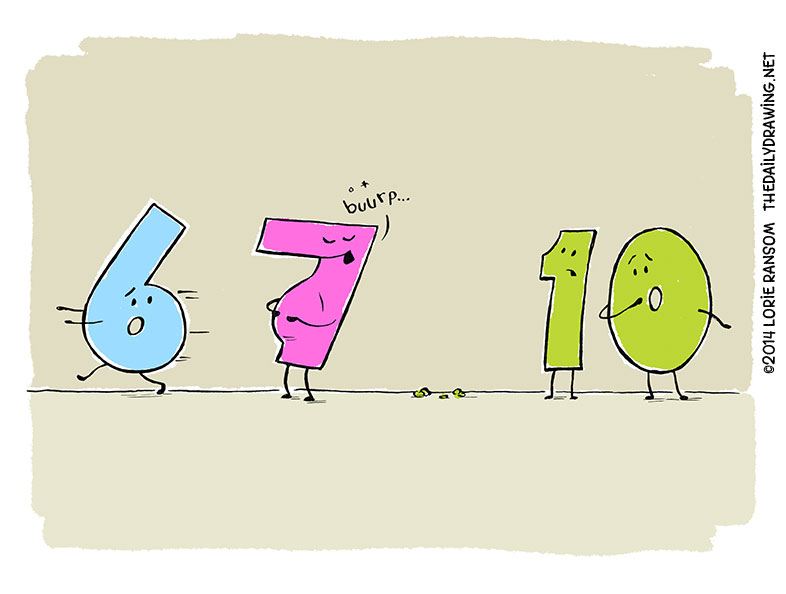 buurp...
6 7 10
©2014 LORIE RANSOM THEDAILYDRAWING.NET